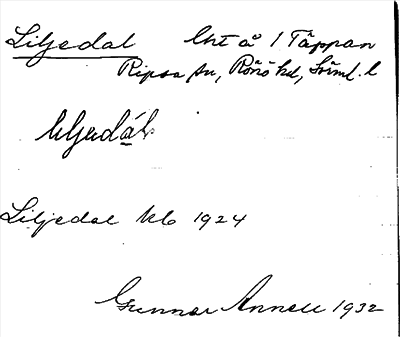 Liljedal Lht å 1 Täppan
Ripsa sn, Rönö hd, Söml. l
liljedál
Liljedal kb 1924
Gunnar Annell 1932